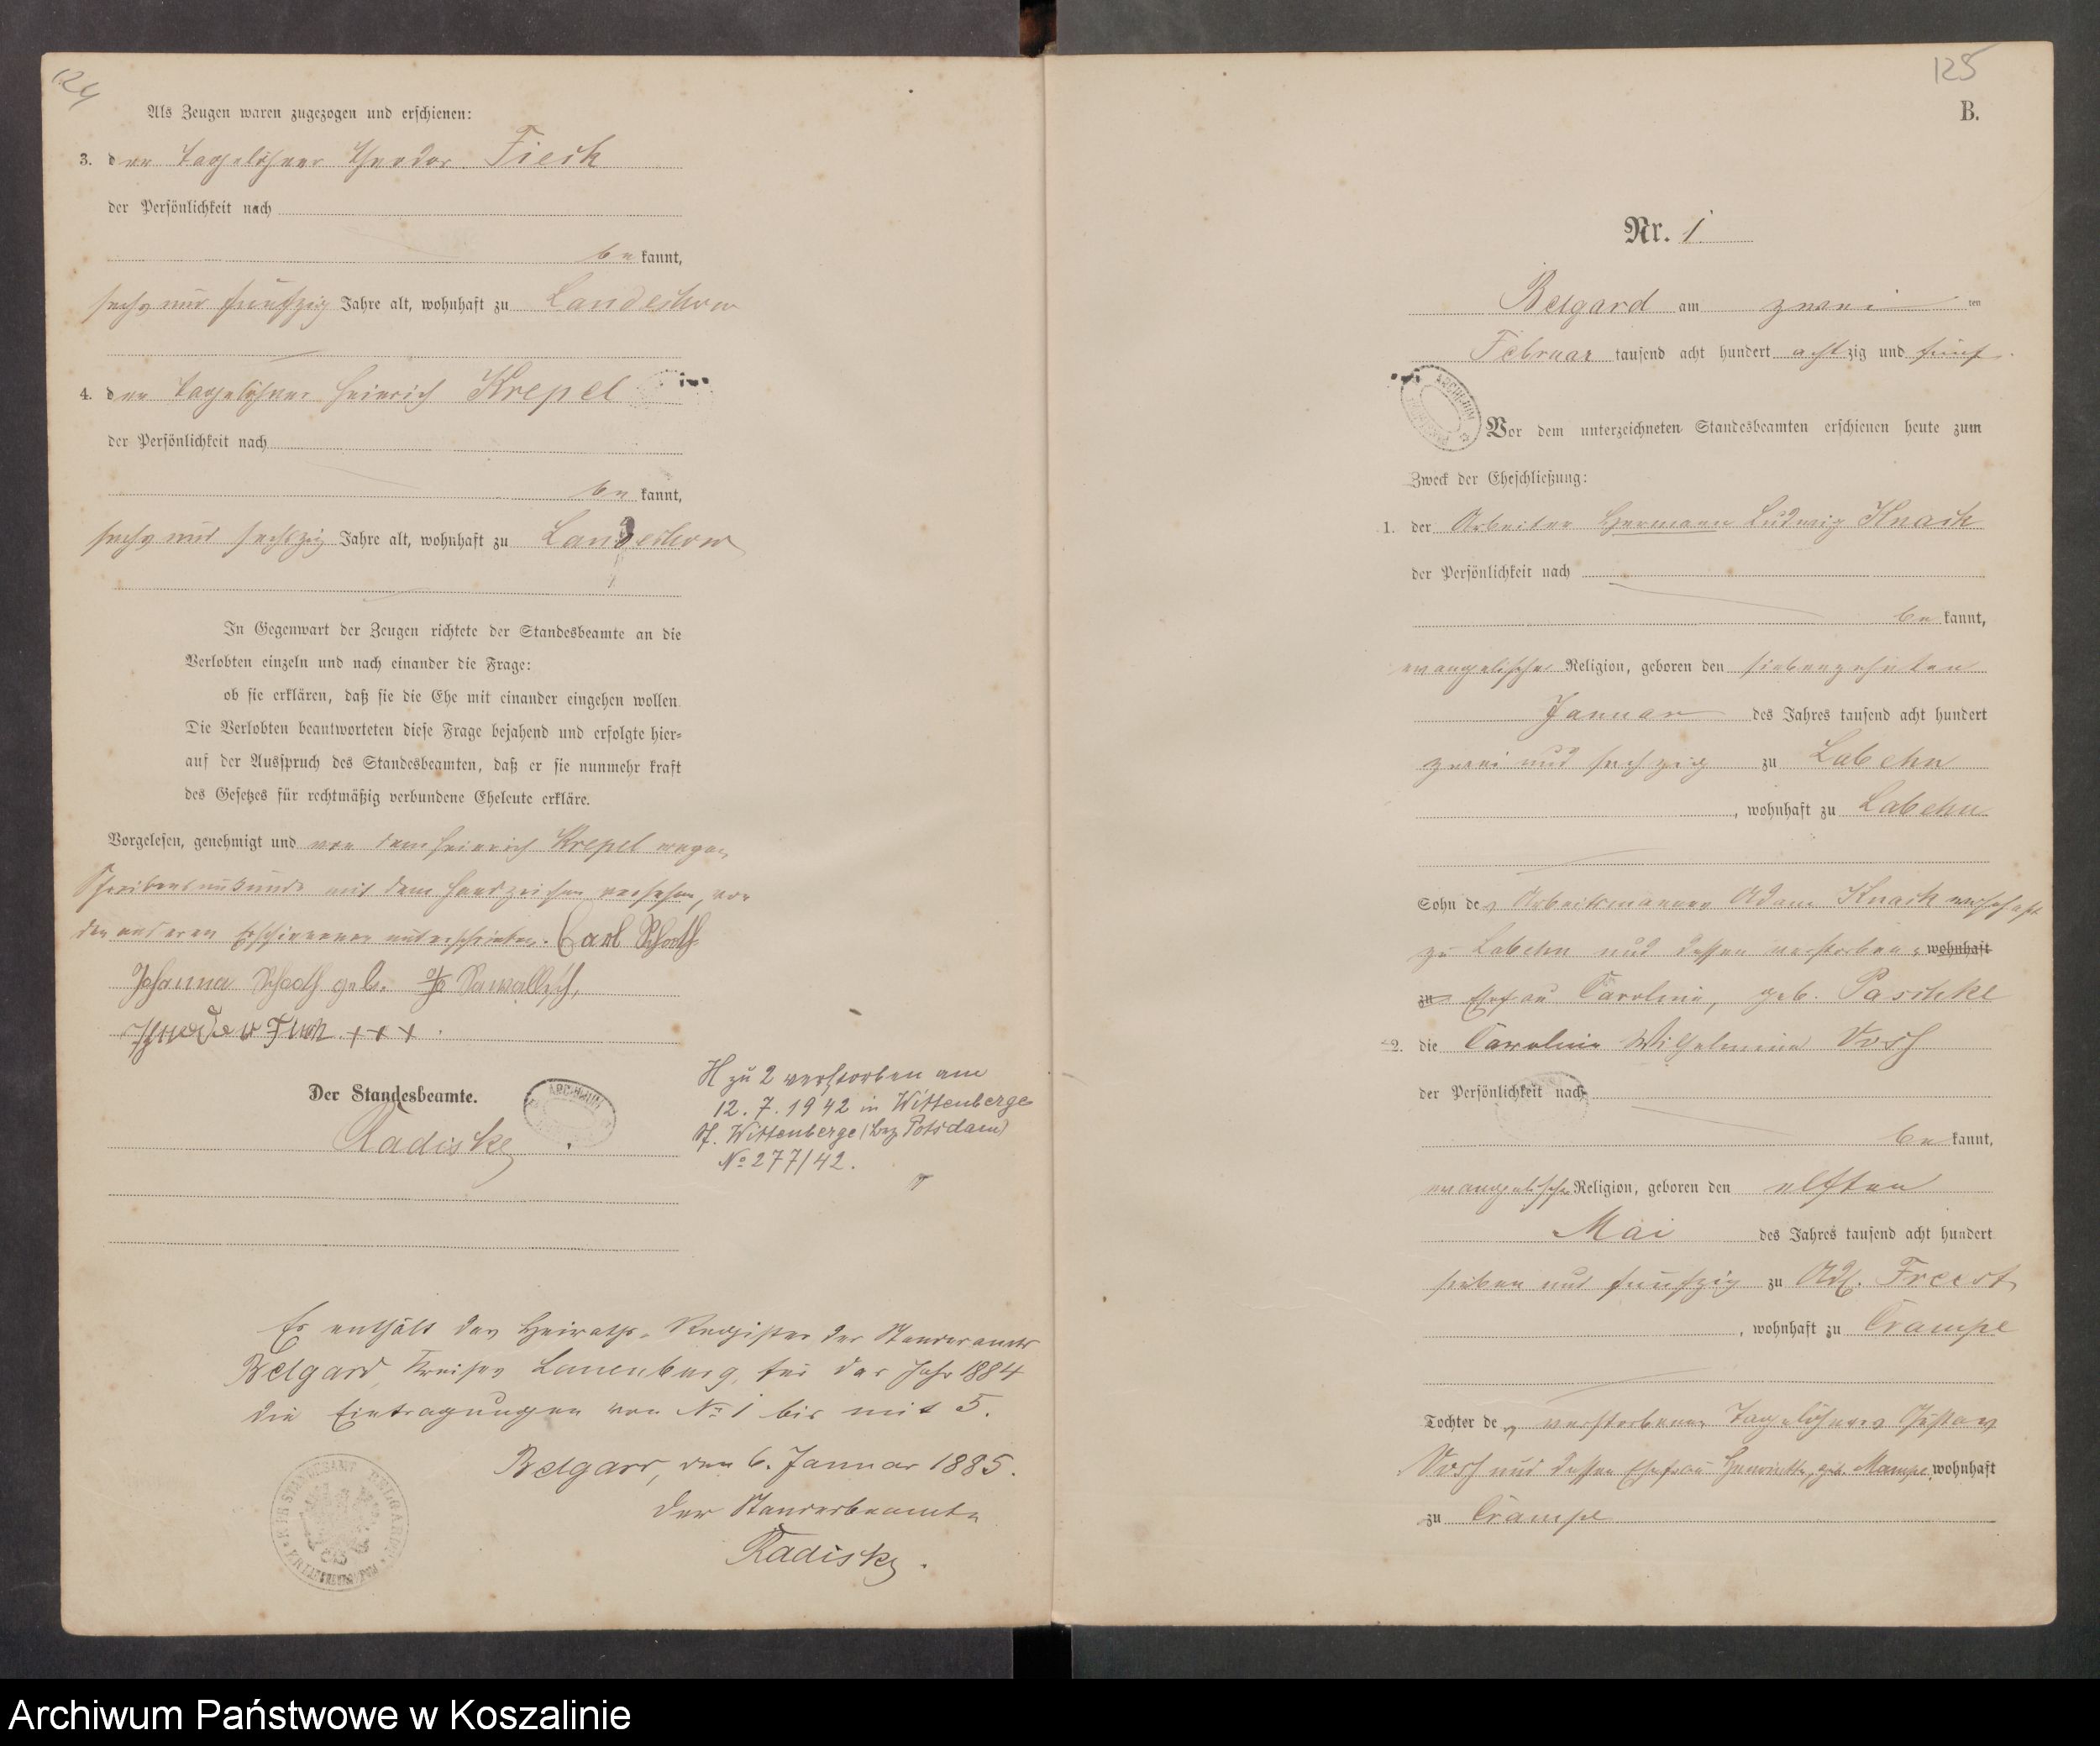 124
Als Zeugen waren zugezogen und erschienen:
3. den Tagelöhner Theodor Fieck
der Persönlichkeit nach
bekannt,
sechs und fünfzig Jahre alt, wohnhaft zu Landechow
4. den Tagelöhner Heinrich Krepel
der Persönlichkeit nach
bekannt,
sechs und sechszig Jahre alt, wohnhaft zu Landechow
In Gegenwart der Zeugen richtete der Standesbeamte an die
Verlobten einzeln und nach einander die Frage:
ob sie erklären, daß sie die Ehe mit einander eingehen wollen.
Die Verlobten beantworteten diese Frage bejahend und erfolgte hier-
auf der Ausspruch des Standesbeamten, daß er sie nunmehr kraft
des Gesetzes für rechtmäßig verbundene Eheleute erkläre.
Vorgelesen, genehmigt und von dem Heinrich Krepel wegen
Schreibensunkunde mit dem Handzeichen versehen, von
den anderen Erschienenen unterschrieben. Carl Schoth
Johanna Schoth geb. Sawallisch,
Theodor Fieck +++.
Der Standesbeamte.
Radiske
H zu 2 verstorben am
12.7.1942 in Wittenberge
St. Wittenberge (Bez Potsdam)
No 277/42.
Es enthält das Heiraths-Register des Standesamts
Belgard, Kreises Lauenburg, für das Jahr 1884
die Eintragungen von No 1 bis mit 5.
Belgard, den 6. Januar 1885.
Der Standesbeamte
Radiske.
125
B.
Nr. 1.
Belgard am zwei ten
Februar tausend acht hundert achtzig und fünf.
ARCHIWUM
Vor dem unterzeichneten Standesbeamten erschienen heute zum
Zweck der Eheschließung:
1. der Arbeiter Hermann Ludwig Knack
der Persönlichkeit nach
bekannt,
evangelischer Religion, geboren den siebenzehnten
Januar des Jahres tausend acht hundert
zwei und sechzig zu Labehn
, wohnhaft zu Labehn
Sohn des Arbeitsmannes Adam Knack wohnhaft
zu Labehn und dessen verstorbene wohnhaft
zu Ehefrau Caroline, geb. Paschke
2. die Caroline Wilhelmine Voss
der Persönlichkeit nach
bekannt,
evangelischer Religion, geboren den elften
Mai des Jahres tausend acht hundert
sieben und fünfzig zu Adl. Freest
, wohnhaft zu Crampe
Tochter des verstorbenen Tagelöhners Gustav
Voss und dessen Ehefrau Henriette, geb. Mampe, wohnhaft
zu Crampe
Archiwum Państwowe w Koszalinie